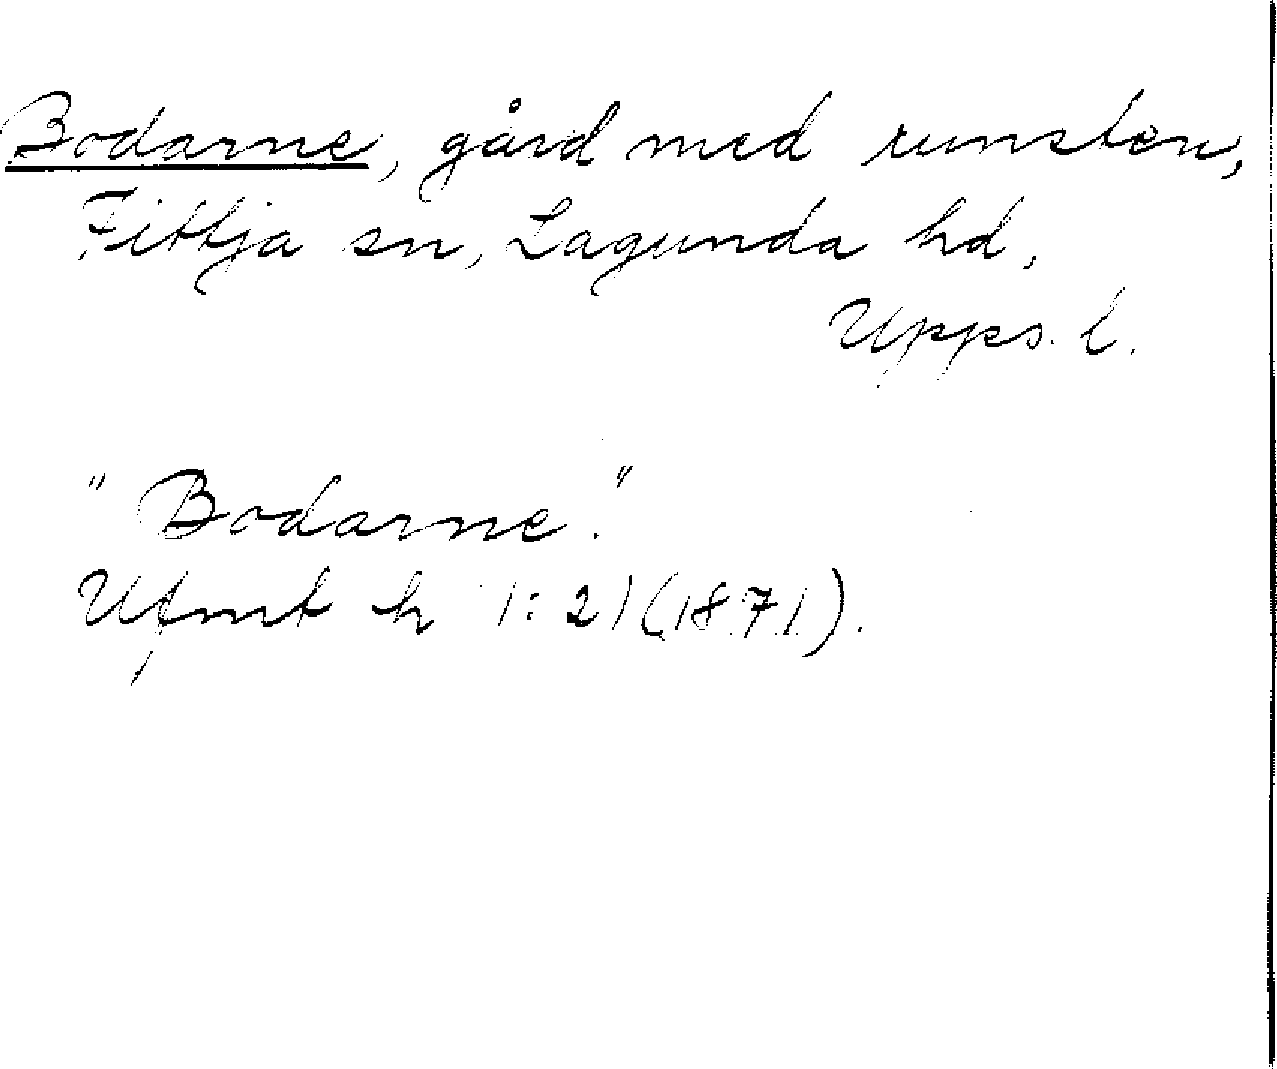 Bodarne, gård med runsten,
Fittja sn, Lagunda hd,
Upps. l.
"Bodarne."
Ufmt h 1:21 (1871).